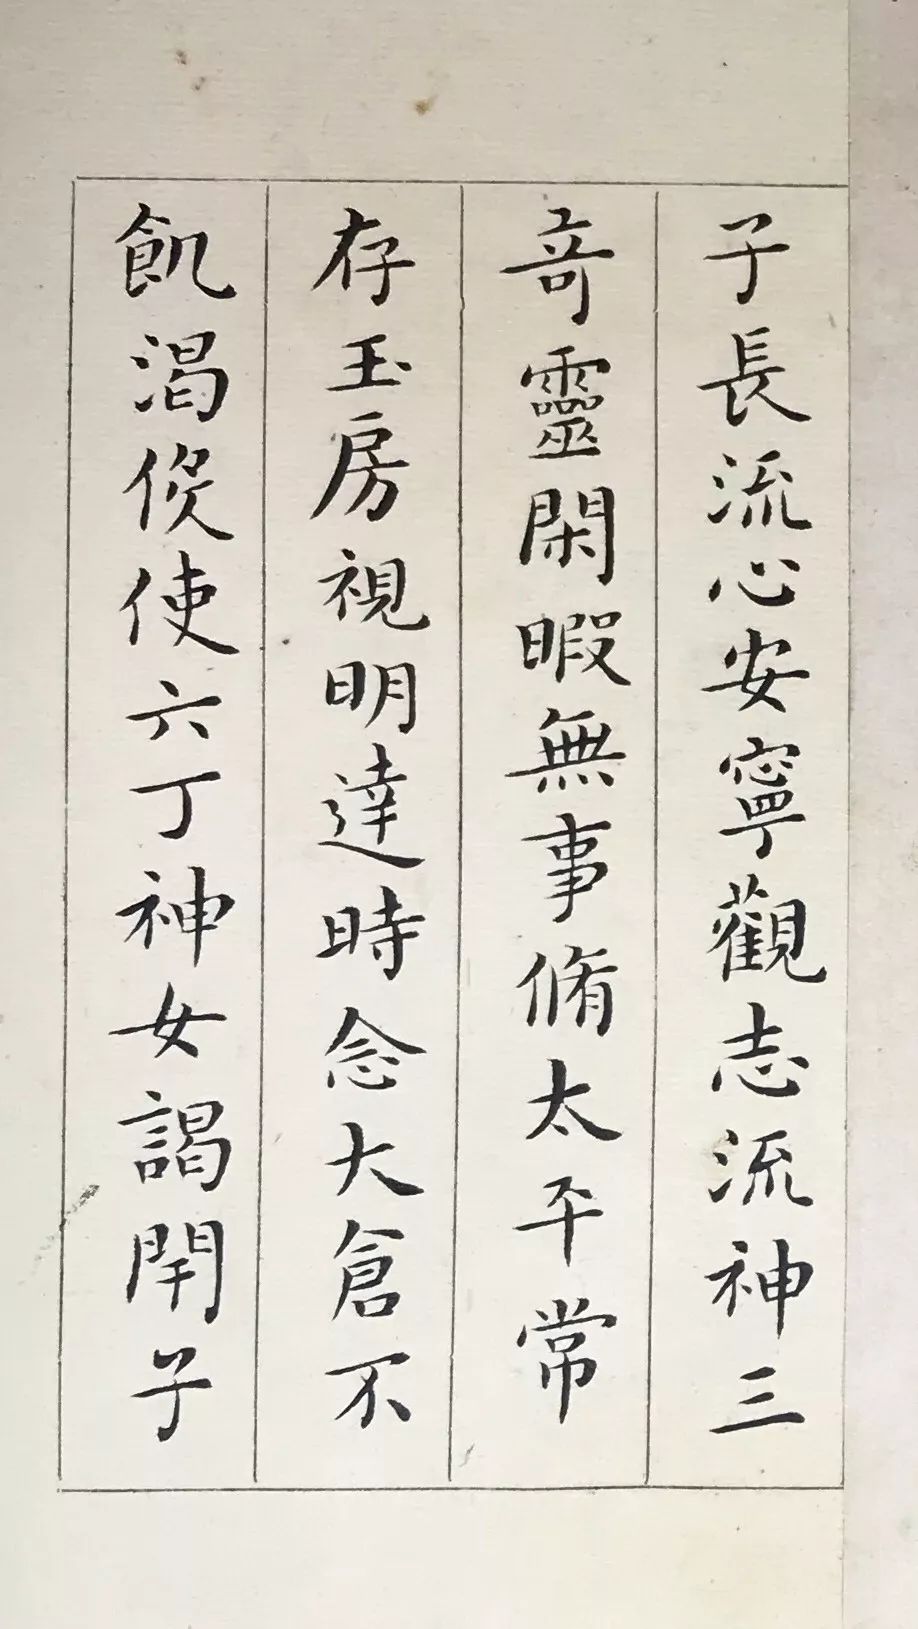 子長流心安寧觀志流神三
奇靈閑暇無事脩太平常
存玉房視明達時念大倉不
飢渴伇使六丁神女謁閇子